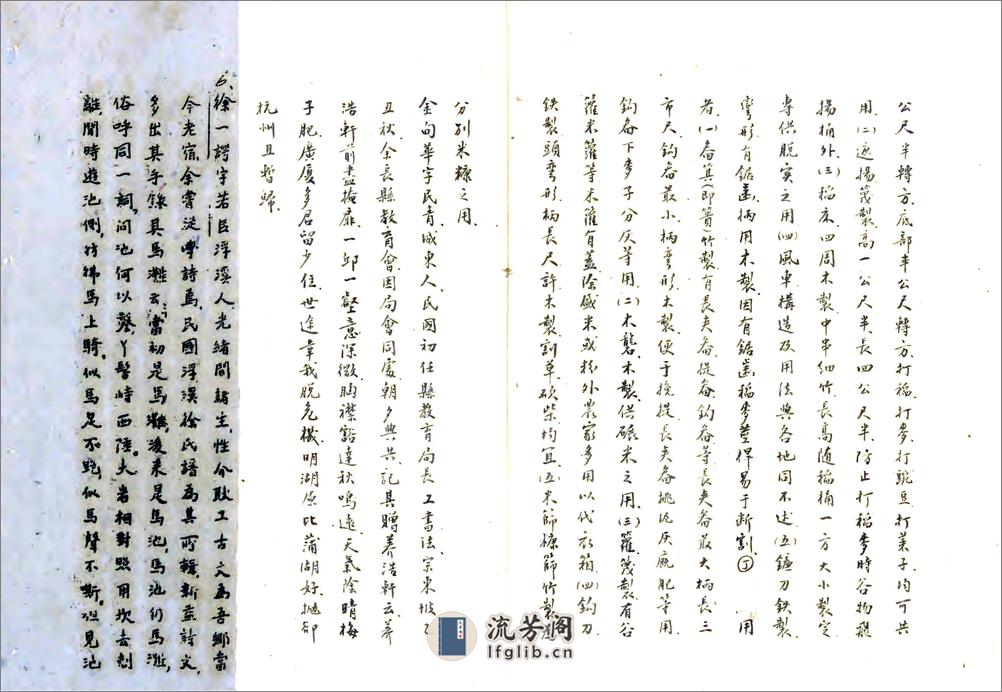 公尺半轉方底部半公尺轉方打稻打麥打豌豆打菜子均可共
用(二)遮揚篾製高一公尺半長四公尺半防止打稻麥時谷物飛
揚桶外(三)稻床四周木製中串細竹長高隨稻桶一方大小製定
專供脫實之用(四)風車構造及用法與各地同不述(五)鐮刀鉄製
彎形有鋸齒柄用木製因有鋸齒稻麥莖桿易于斷割 用
者(一)畚箕(即蕢)竹製有長夾畚提畚鈎畚等長夾畚最大柄長三
市尺鈎畚最小柄彎形木製便于挽提長夾畚挑坭灰廐肥等用
鈎畚下麥子分灰等用(二)木礱木製供碾米之用(三)籮篾製有谷
籮米籮等米籮有蓋除盛米或粉外農家多用以代衣箱(四)鈎刀
鉄製頭彎形柄長尺許木製割草砍柴均宜(五)米篩糠篩竹製
分别米糠之用
金句華字民青城東人民國初任縣教育局長工書法宗東坡乙
丑秋余長縣教育會因局會同處朝夕與共記其贈养浩軒云养
浩軒前盡掩扉一邱一壑意深微胸襟豁達秋鳴遠天氣陰晴梅
子肥廣厦多君留少住世途幸我脫危機明湖原比蒲湖好抛却
杭州且暫歸
6、徐一諤字若臣浮溪人光緒間諸生性介耿工古文為吾鄉當
今老宿余嘗從學詩焉民國浮溪徐氏譜為其所輯新益詩文
多出其手錄其馬灘云當初是馬灘後来是馬池馬池仍馬灘
俗呼同一詞问池何以鑿丫髻峙西陲大岩相對照用坎去剋
離閒時遊池側彷彿馬上騎似馬足不跑似馬聲不斷但見池
流芳阁
lfglib.cn